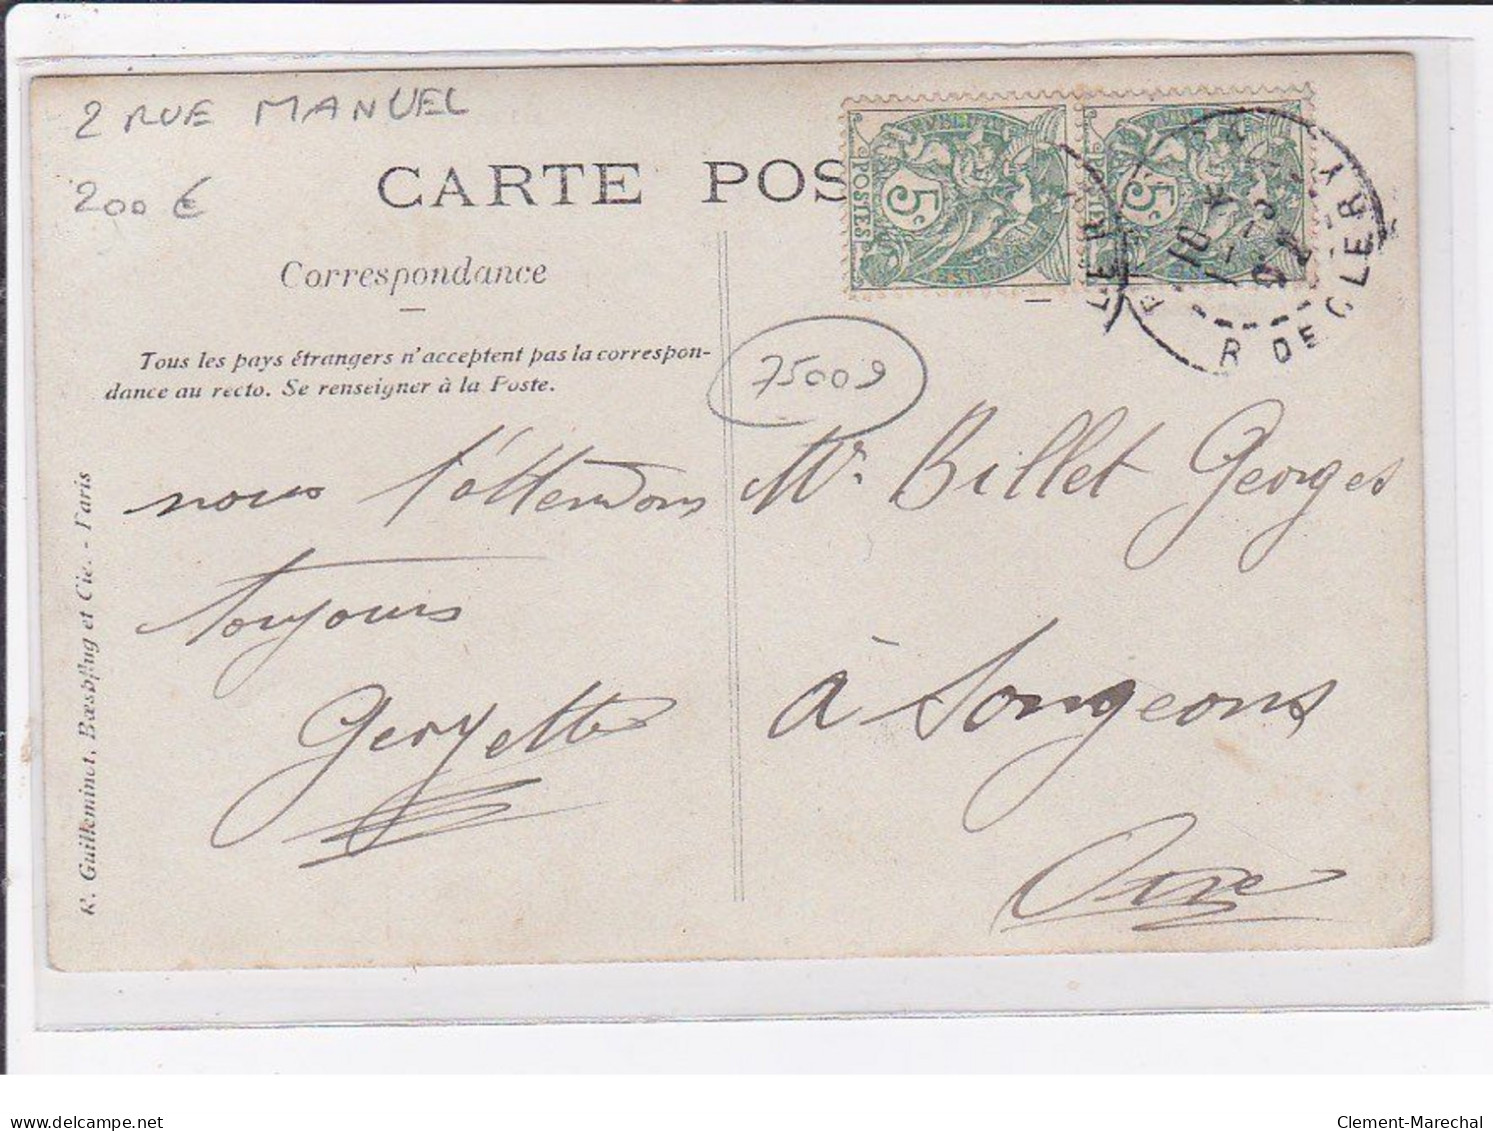 2 RUE MANUEL
200 €
CARTE POS
Correspondance
Tous les pays étrangers n'acceptent pas la correspon-
dance au recto. Se renseigner à la Poste.
75009
5c
POSTES
5c
POSTES
R DE CLERY
nous t'attendons
toujours
Mr. Billet Georges
à Songeons
Oise
R. Guilleminot, Bœspflug et Cie. - Paris
delcampe.net
Clement-Marechal